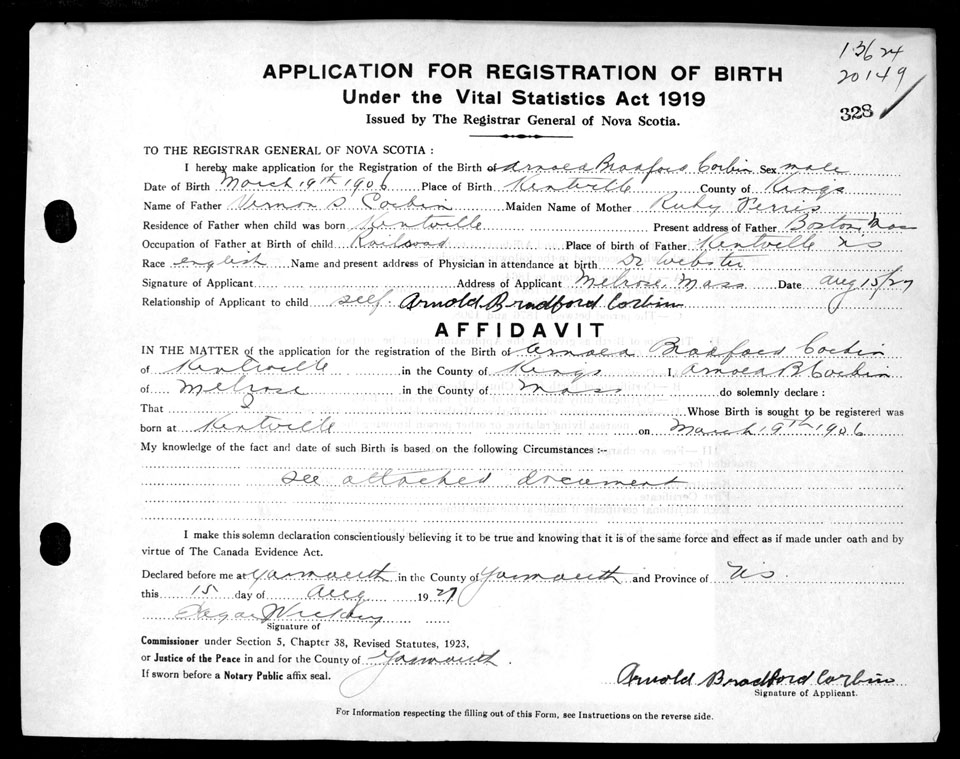 13624
20149
328
APPLICATION FOR REGISTRATION OF BIRTH
Under the Vital Statistics Act 1919
Issued by The Registrar General of Nova Scotia.
TO THE REGISTRAR GENERAL OF NOVA SCOTIA :
I hereby make application for the Registration of the Birth of Arnold Bradford Corbin Sex male
Date of Birth March 19th 1906 Place of Birth Kentville County of Kings
Name of Father Vernon S Corbin Maiden Name of Mother Ruby Ferris
Residence of Father when child was born Kentville Present address of Father Boston Mass
Occupation of Father at Birth of child Railroad Place of birth of Father Kentville NS
Race english Name and present address of Physician in attendance at birth Dr Webster
Signature of Applicant Address of Applicant Melrose, Mass Date Aug 15/27
Relationship of Applicant to child self. Arnold Bradford Corbin
AFFIDAVIT
IN THE MATTER of the application for the registration of the Birth of Arnold Bradford Corbin
of Kentville in the County of Kings I, Arnold B Corbin
of Melrose in the County of Mass do solemnly declare :
That I Whose Birth is sought to be registered was
born at Kentville on March 19th 1906
My knowledge of the fact and date of such Birth is based on the following Circumstances :-
see attached document
I make this solemn declaration conscientiously believing it to be true and knowing that it is of the same force and effect as if made under oath and by
virtue of The Canada Evidence Act.
Declared before me at Yarmouth in the County of Yarmouth and Province of NS.
this 15 day of Aug 1927
Signature of
Commissioner under Section 5, Chapter 38, Revised Statutes, 1923,
or Justice of the Peace in and for the County of Yarmouth.
If sworn before a Notary Public affix seal.
Arnold Bradford Corbin
Signature of Applicant.
For Information respecting the filling out of this Form, see Instructions on the reverse side.